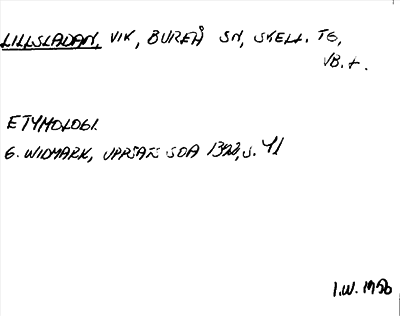 LILLSLADAN, VIK, BUREÅ SN, SKELL. TG,
VB. +.
ETYMOLOGI.
G. WIDMARK, UPPSATS SOA 1323, s. 41
I.W. 1950